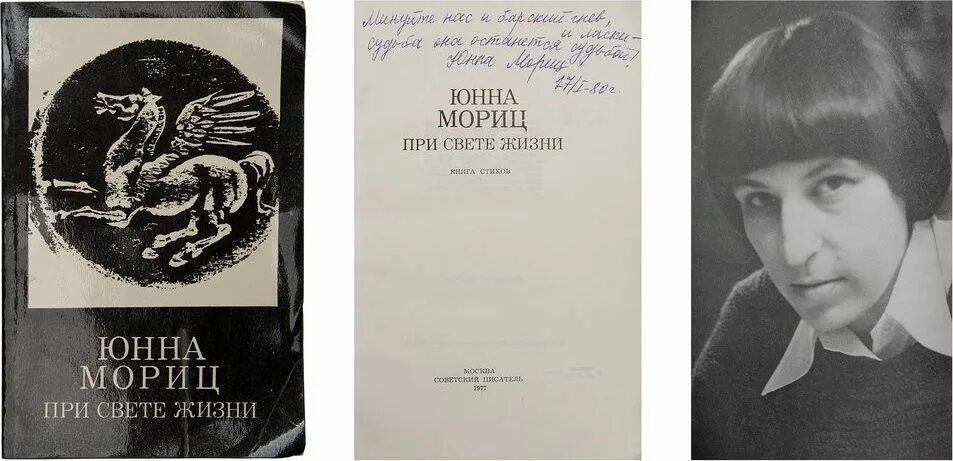 ЮННА
МОРИЦ
ПРИ СВЕТЕ ЖИЗНИ
Минуйте нас и барский гнев,
и ласки –
судьба она останется судьбой!
Юнна Мориц
27/I-80г.
ЮННА
МОРИЦ
ПРИ СВЕТЕ ЖИЗНИ
КНИГА СТИХОВ
МОСКВА
СОВЕТСКИЙ ПИСАТЕЛЬ
1977